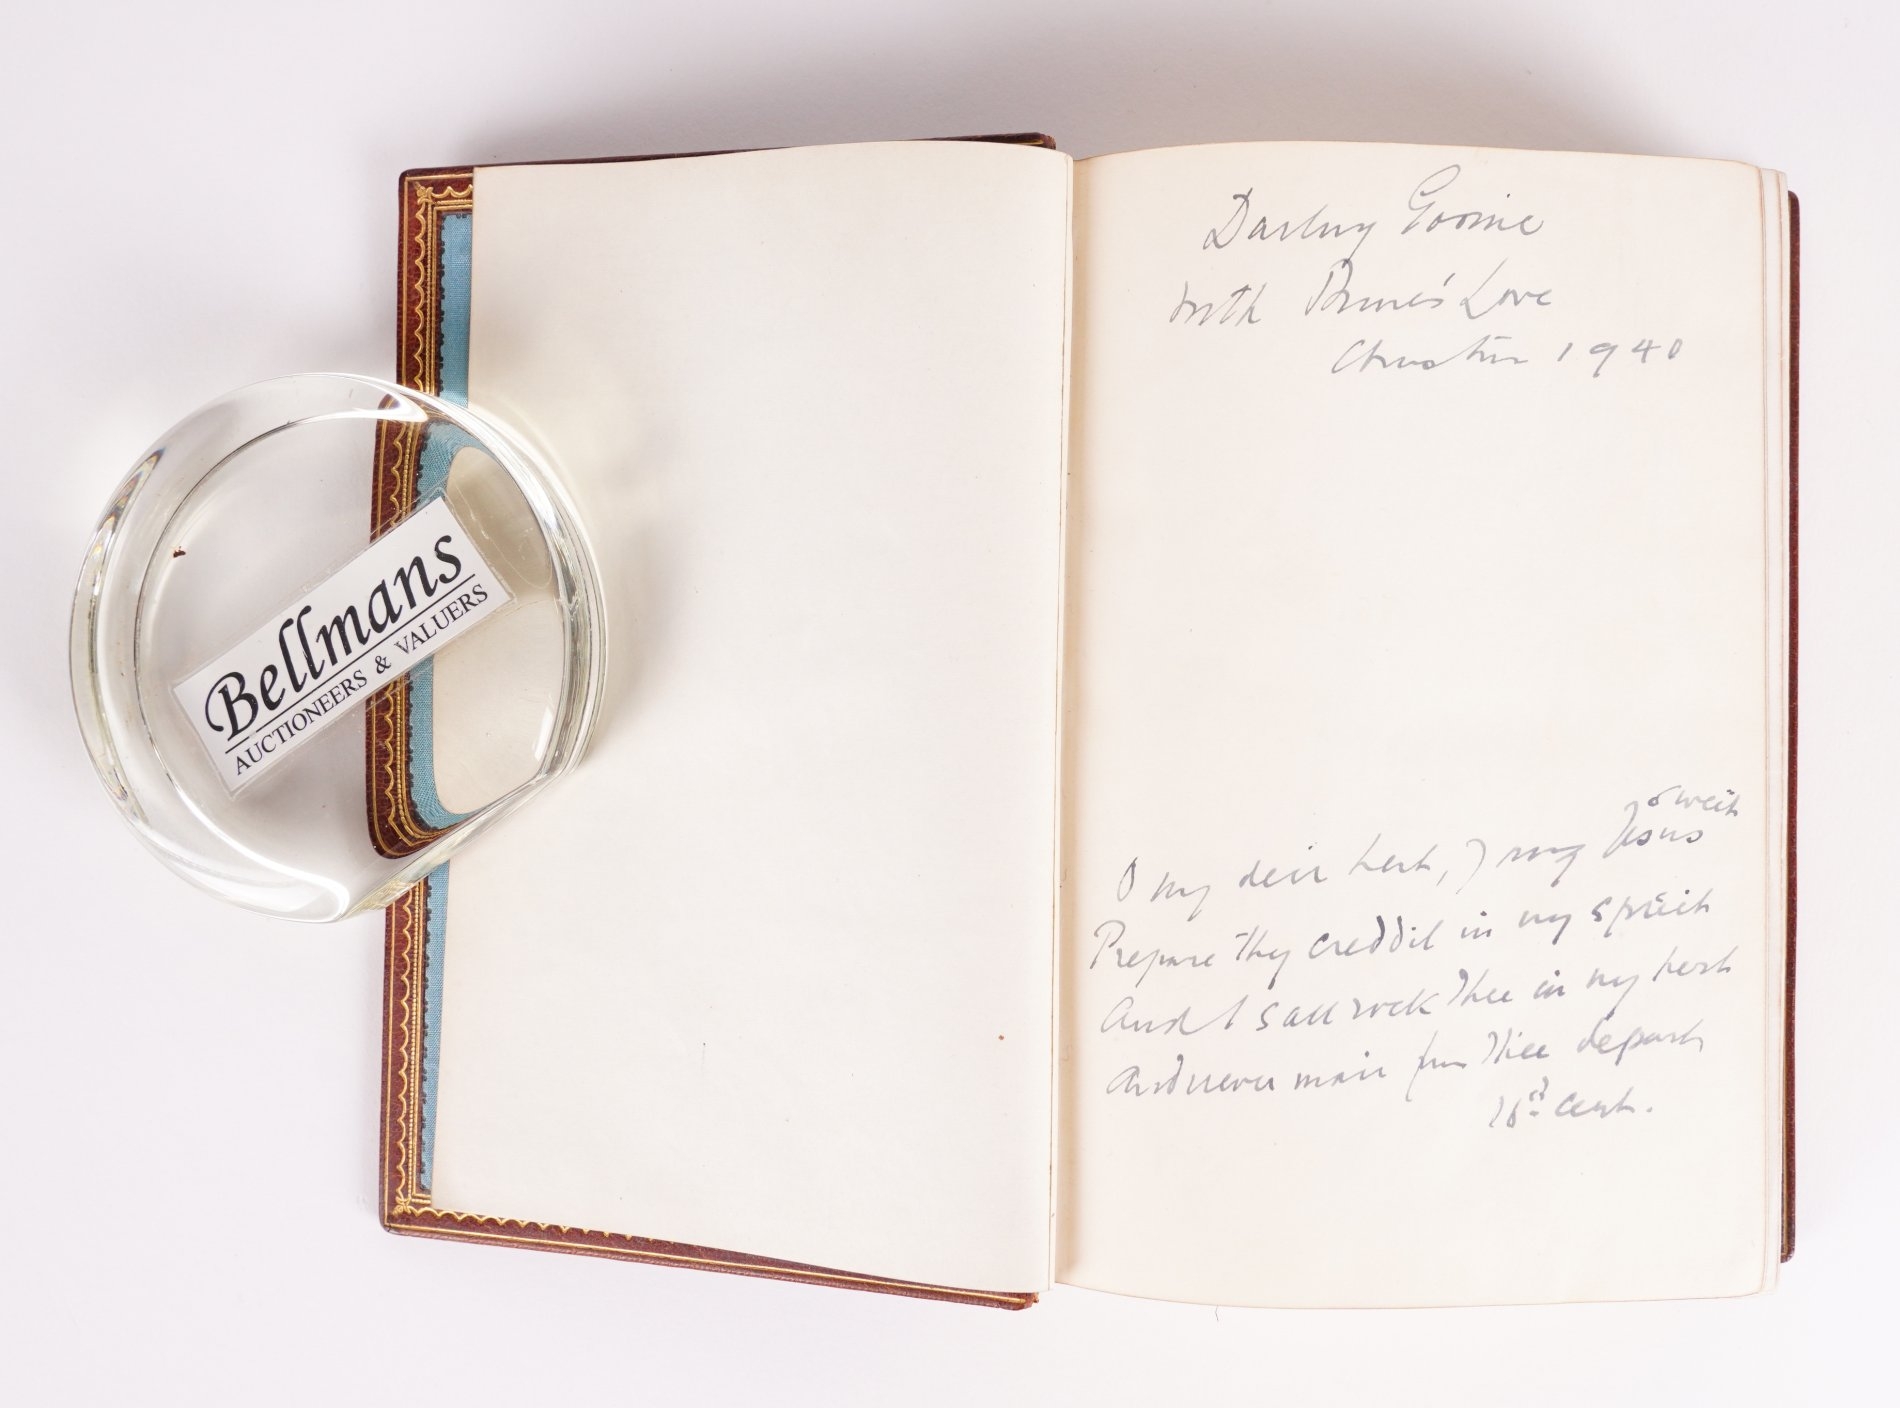 Bellmans
AUCTIONEERS & VALUERS
Darling
with Love
1940
O my deir hert, my Jesus sweit
Prepare Thy creddil in my spreit
And I sall rock Thee in my hert
And never mair from Thee depart
16 Cent.